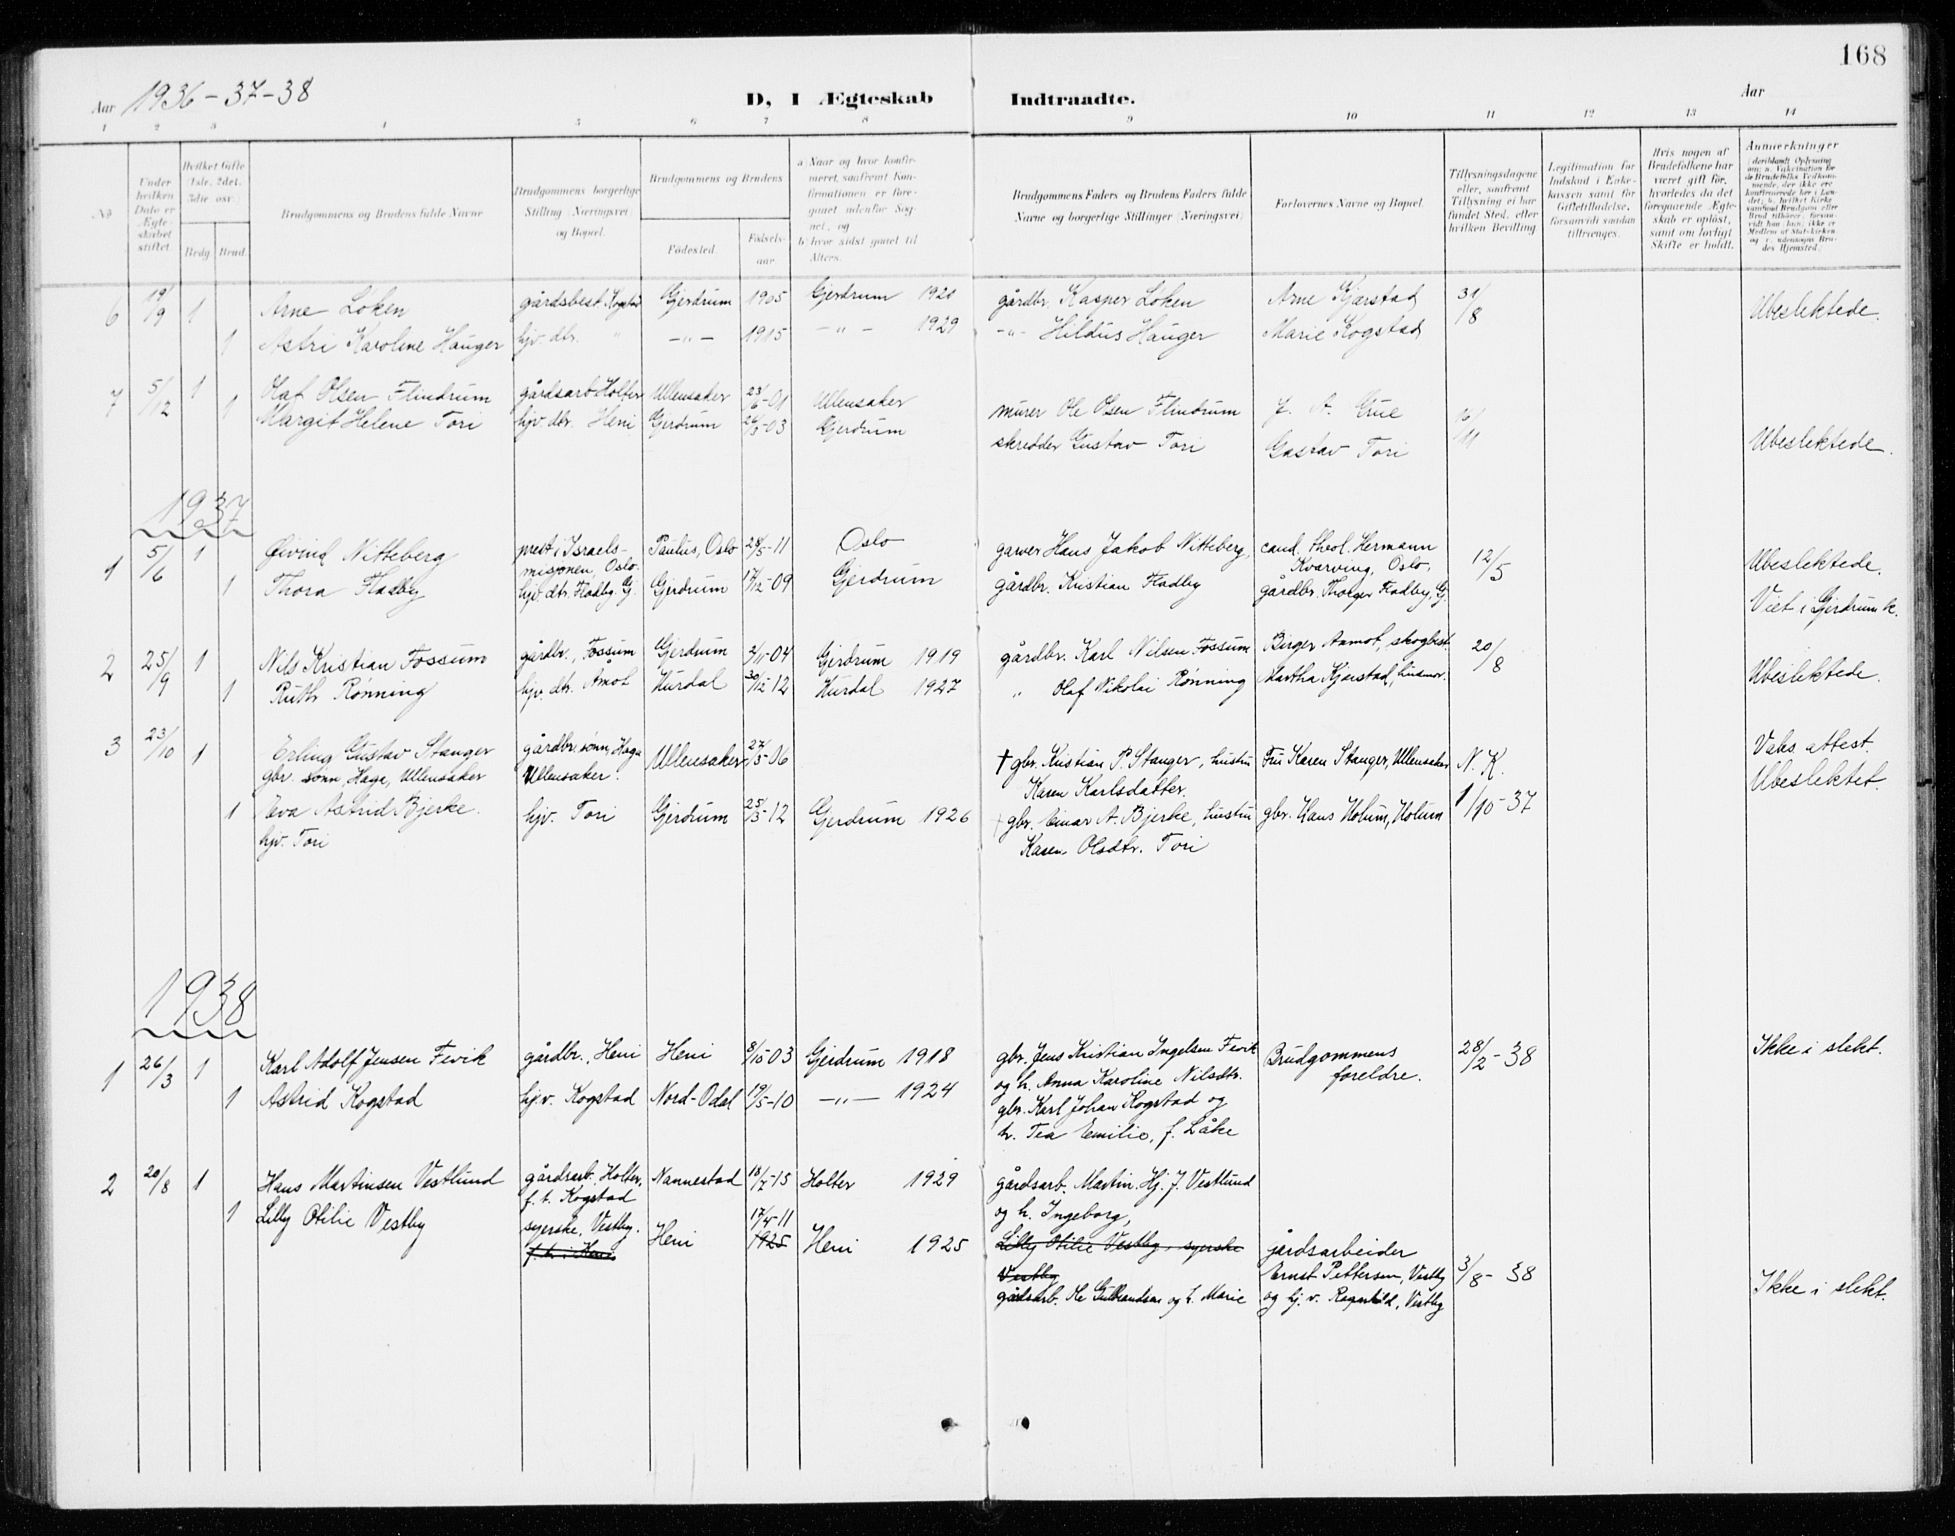 168
Aar 1936-37-38
D, I Ægteskab Indtraadte.
Aar
1 2 3 4 5 6 7 8 9 10 11 12 13 14
No
Under hvilken Dato er Ægteskabet stiftet
Hvilket Gifte (1ste, 2det, 3die osv.
Brdg. Brud.
Brudgommens og Brudens fulde Navne
Brudgommens borgerlige Stilling (Næringsvei) og Bopæl.
Brudgommens og Brudens
Fødested.
Fødselsaar
a) Naar og hvor konfirmeret, saafremt Konfirmationen er foregaaet udenfor Sognet, og
b) hvor sidst gaaet til Alters.
Brudgommens Faders og Brudens Faders fulde Navne og borgerlige Stillinger (Næringsvei).
Forlovernes Navne og Bopæl.
Tillysningsdagene eller, saafremt Tillysning ei har fundet Sted, efter hvilken Bevilling
Legitimation for Indskud i Enkekassen samt for Giftetilladelse, forsaavidt saadan tiltrænges.
Hvis nogen af Brudefolkene har været gift før, hvorledes da det foregaaende Ægteskab er opløst, samt om lovligt Skifte er holdt.
Anmerkninger
6 19/9 1 Arne Løken gårdsbest. Kogstad Gjerdrum 1905 Gjerdrum 1920 gårdbr. Kasper Løken Arne Kjærstad 31/8 Ubeslektede.
1 Astri Karoline Hauger hjv. dtr. " -"- 1915 -"- 1929 -"- Hildus Hauger Marie Kogstad
7 5/12 1 Olaf Olsen Flindrum gårdsarb Holter Ullensaker 23/6-01 Ullensaker murer Ole Olsen Flindrum J. A. Grue 16/11
1 Margit Helene Tori hjv. dtr. Heni Gjerdrum 26/3-03 Gjerdrum skredder Gustav Tori Gustav Tori Ubeslektede.
1937
1 5/6 1 Øivind Nitteberg prest i Israels- Paulus, Oslo 28/5-11 Oslo garver Hans Jakob Nitteberg, cand. theol. Hermann 12/5 Ubeslektede.
misjonen, Oslo. Kvarving, Oslo.
1 Thora Fladby hjv. dtr. Fladby. Gj. Gjerdrum 17/12-09 Gjerdrum gårdbr. Kristian Fladby gårdbr. Tholger Fladby, Gj. Viet i Gjerdrum k.
2 25/9 1 Nils Kristian Fossum gårdbr., Fossum Gjerdrum 2/11-04 Gjerdrum 1919 gårdbr. Karl Nilsen Fossum Birger Aamot, skogbest. 20/8
1 Ruth Rønning hjv. dtr. Åmot Hurdal 30/12-12 Hurdal 1927 " Olaf Nikolai Rønning Martha Kjærstad, husmor. Ubeslektede.
3 23/10 1 Erling Gustav Stanger gårdbr. sønn, Haga Ullensaker 27/5-06 † gbr. Kristian P. Stanger, hustru Fru Karen Stanger, Ullensaker N. K. Vaks. attest.
gbr. sønn, Haga, Ullensaker Ullensaker. Karen Karlsdatter. Ubeslektet.
1 Eva Astrid Bjerke. hjv. Tori Gjerdrum 25/3-12 Gjerdrum 1926 † gbr. Einar A. Bjerke, hustru gbr. Hans Holum, Holum 1/10-37
hjv. Tori Karen Olsdtr. Tori
1938
1 26/3 1 Karl Adolf Jensen Fevik gårdbr., Heni Heni 8/10-03 Gjerdrum 1918 gbr. Jens Kristian Ingelsen Fevik Brudgommens 28/2-38 Ikke i slekt.
og h. Anna Karoline Nilsdtr. foreldre.
1 Astrid Kogstad hjv. Kogstad Nord-Odal 19/5-10 -"- 1924 gbr. Karl Johan Kogstad og
h. Tea Emilie, f. Låke
2 20/8 1 Hans Martinsen Vestlund gårdsarb. Holter, Nannestad 18/7-15 Holter 1929 gårdsarb. Martin Hj. J. Vestlund
f. t. Kogstad og h. Ingeborg,
1 Lilly Otilie Vestby syerske, Vestby. Heni 17/4-11 Heni 1925 Lilly Otilie Vestby, syerske gårdsarbeider
f. t. i Heni 1925 Vestby Ernst Pettersen, Vestby 3/8-38
gårdsarb. Ole Gulbrandsen og h. Marie og hj. v. Ragnhild, Vestby Ikke i slekt.